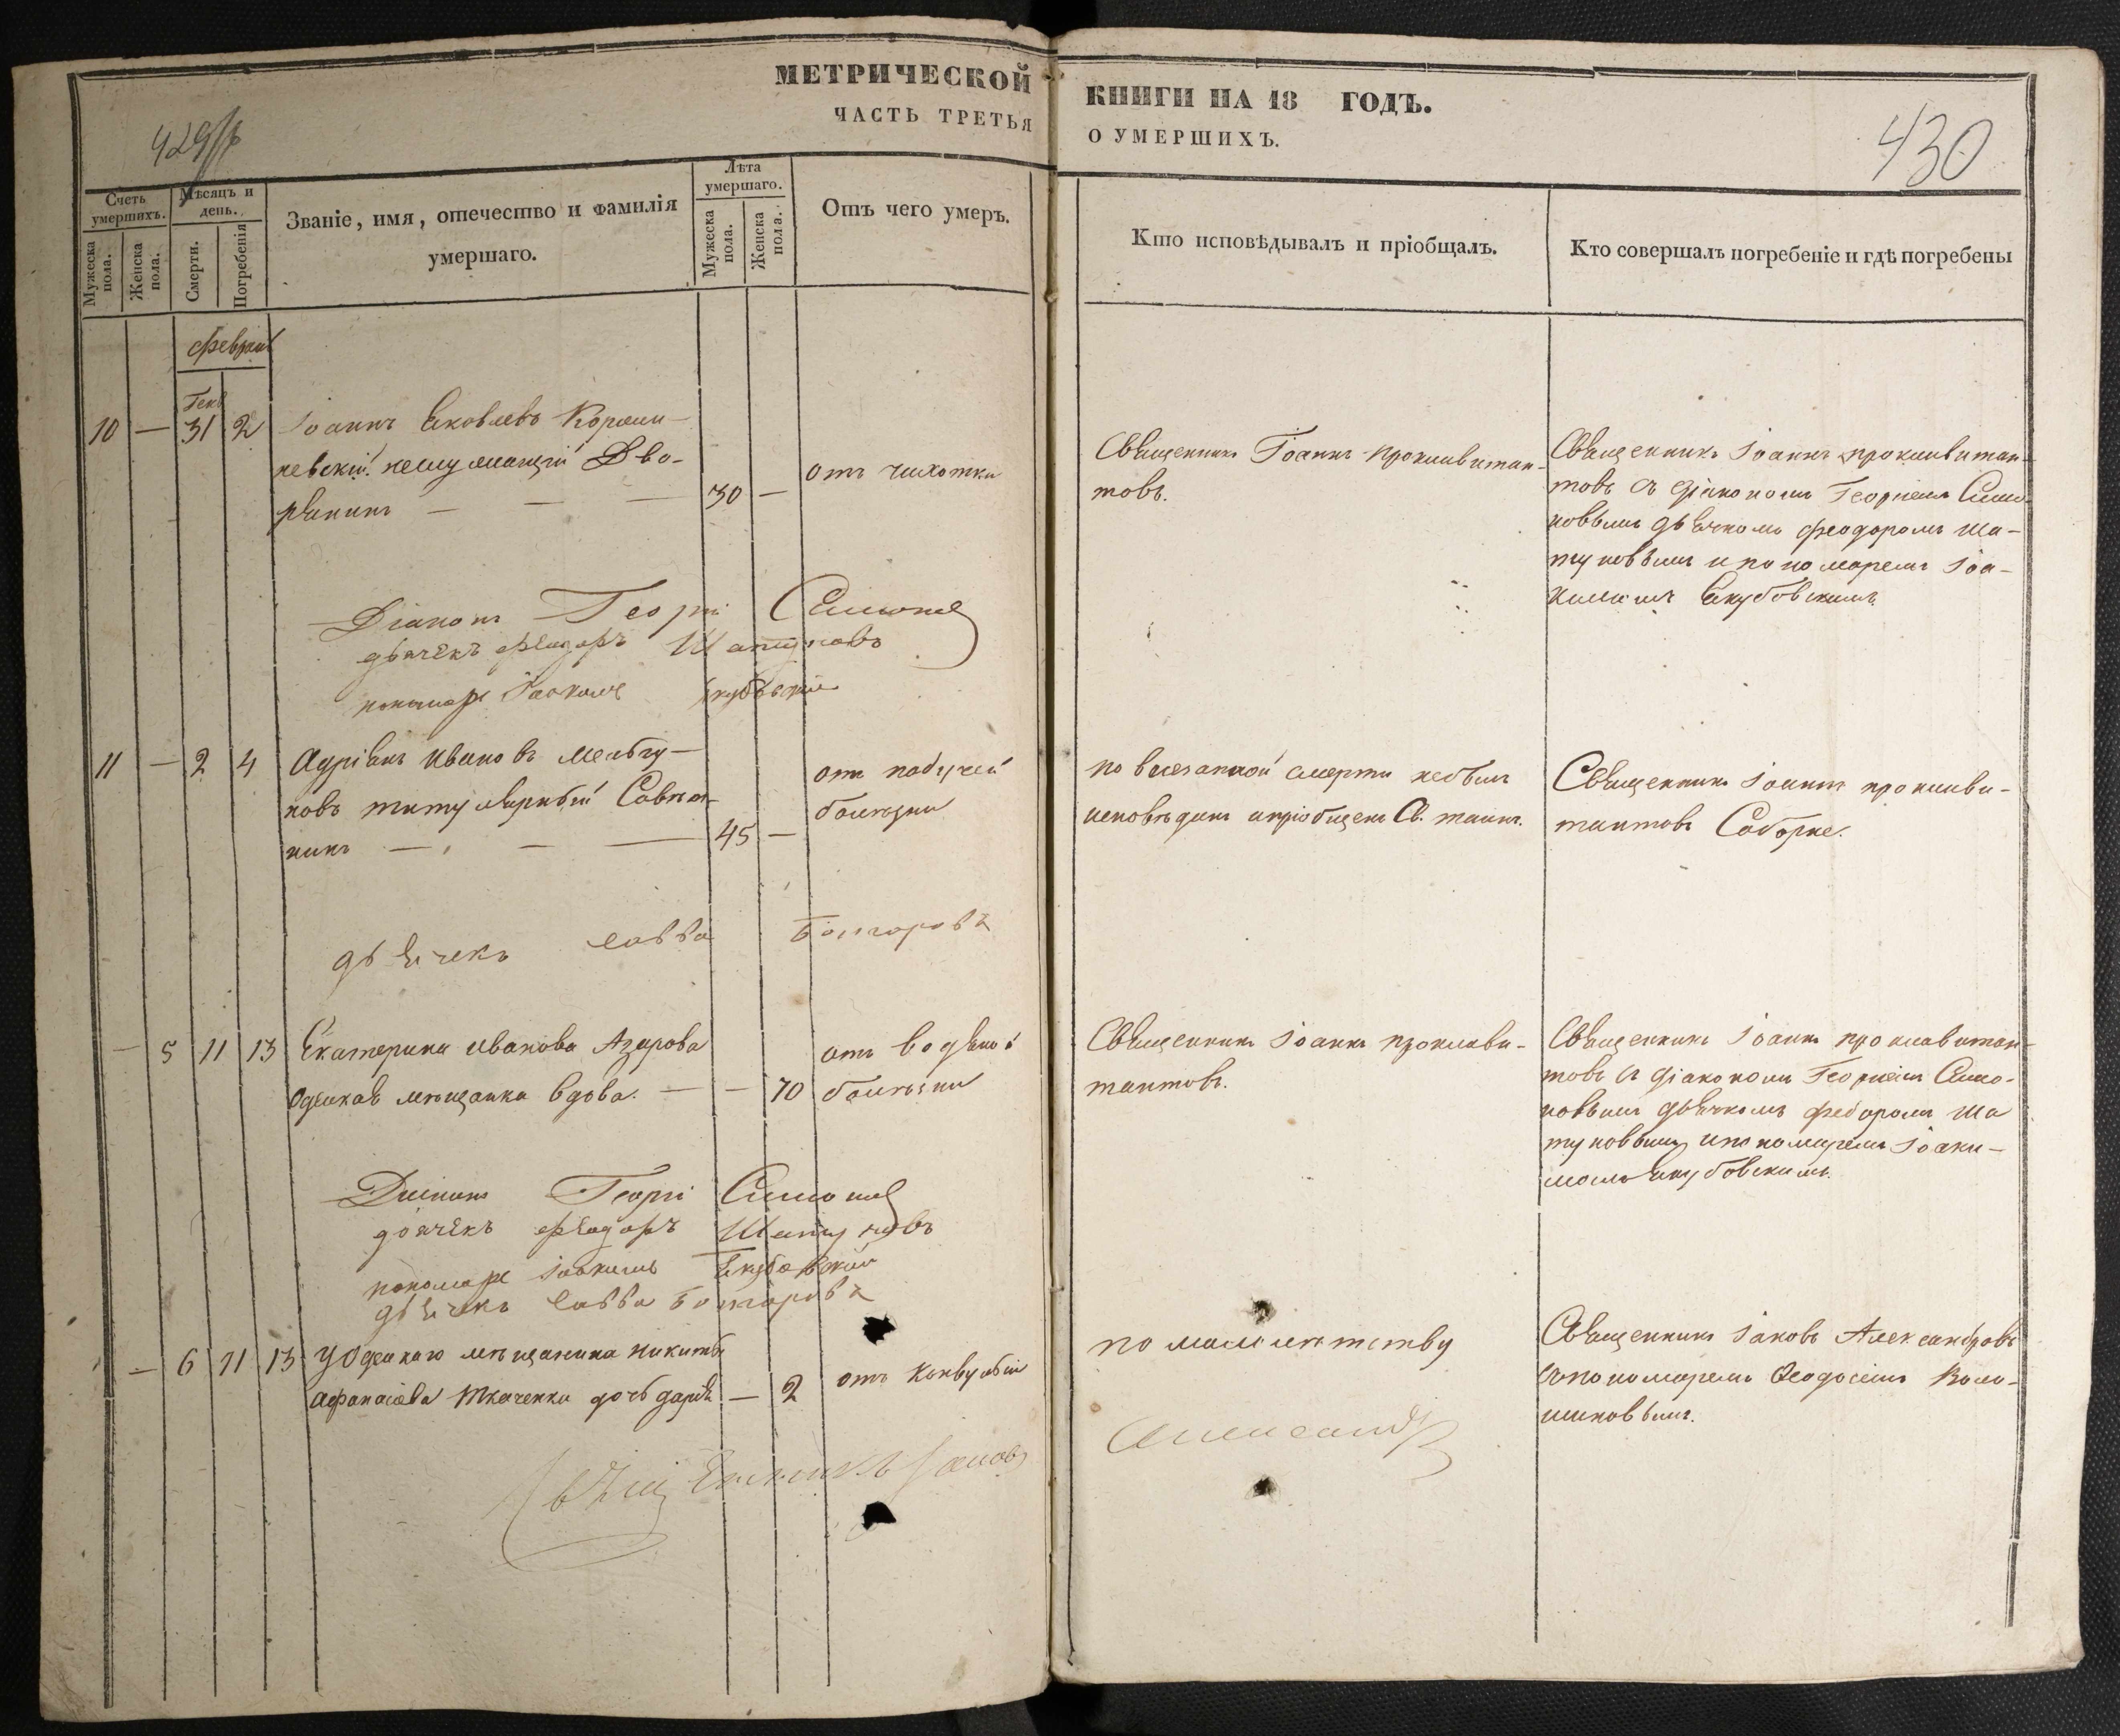 МЕТРИЧЕСКОЙ
КНИГИ НА 18 ГОДЪ.
ЧАСТЬ ТРЕТЬЯ
О УМЕРШИХЪ.
430
Счетъ умершихъ.
Мѣсяцъ и день.
Званіе, имя, отечество и фамилія
умершаго.
Лѣта умершаго.
Отъ чего умеръ.
Кто исповѣдывалъ и пріобщалъ.
Кто совершалъ погребеніе и гдѣ погребены
Мужеска пола.
Женска пола.
Смерти.
Погребенія
Мужеска пола.
Женска пола.
10 — 31 2 Іоаннъ Яковлевъ
Дво-
рянинъ — — — 30 —
отъ чихотки
Священникъ Іоаннъ Прокливитан-
товъ.
Священникъ Іоаннъ Прокливитан-
товъ съ діакономъ Георгіемъ Симо-
новымъ дьячкомъ Феодоромъ Ша-
туновымъ и пономаремъ Іоа-
кимомъ Якубовскимъ.
Діаконъ Георгій Симоновъ
дьячекъ Феодоръ Шатуновъ
пономарь Іоакимъ Якубовскій
11 — 2 4 Адріанъ Ивановъ Мельгу-
новъ титулярный Совѣт-
никъ — — — 45 —
отъ падучей
болѣзни
по внезапной смерти небылъ
исповѣданъ и пріобщенъ Св. таинъ.
Священникъ Іоаннъ Прокливи-
тантовъ Соборне.
дьячекъ Савва
— 5 11 13 Екатерина Иванова Азарова
Одеская мѣщанка вдова. — — 70
отъ водяной
болѣзни
Священникъ Іоаннъ Прокливи-
тантовъ.
Священникъ Іоаннъ Проклавитан-
товъ съ діакономъ Георгіемъ Симо-
новымъ дьячкомъ Федоромъ Ша
туновымъ и пономаремъ Іоаки-
момъ Якубовскимъ.
Діаконъ Георгій Симоновъ
дьячекъ Феодоръ Шатуновъ
пономарь Іоакимъ Якубовскій
дьячекъ Савва
— 6 11 13 У Одескаго мѣщанина Никиты
Афанасіева Ткаченки дочь Дарія — 2
отъ конвульсій
по малолѣтству
Священникъ Іаковъ Александровъ
съ пономаремъ Феодосіемъ Коло-
шиновымъ.
Священникъ Іаковъ
Александр